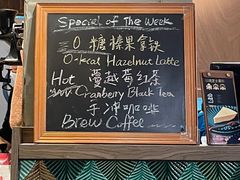 Special of The Week
0 糖榛果拿铁
0-kcal Hazelnut Latte
Hot 蔓越莓红茶
Cranberry Black Tea
手冲咖啡
Brew Coffee